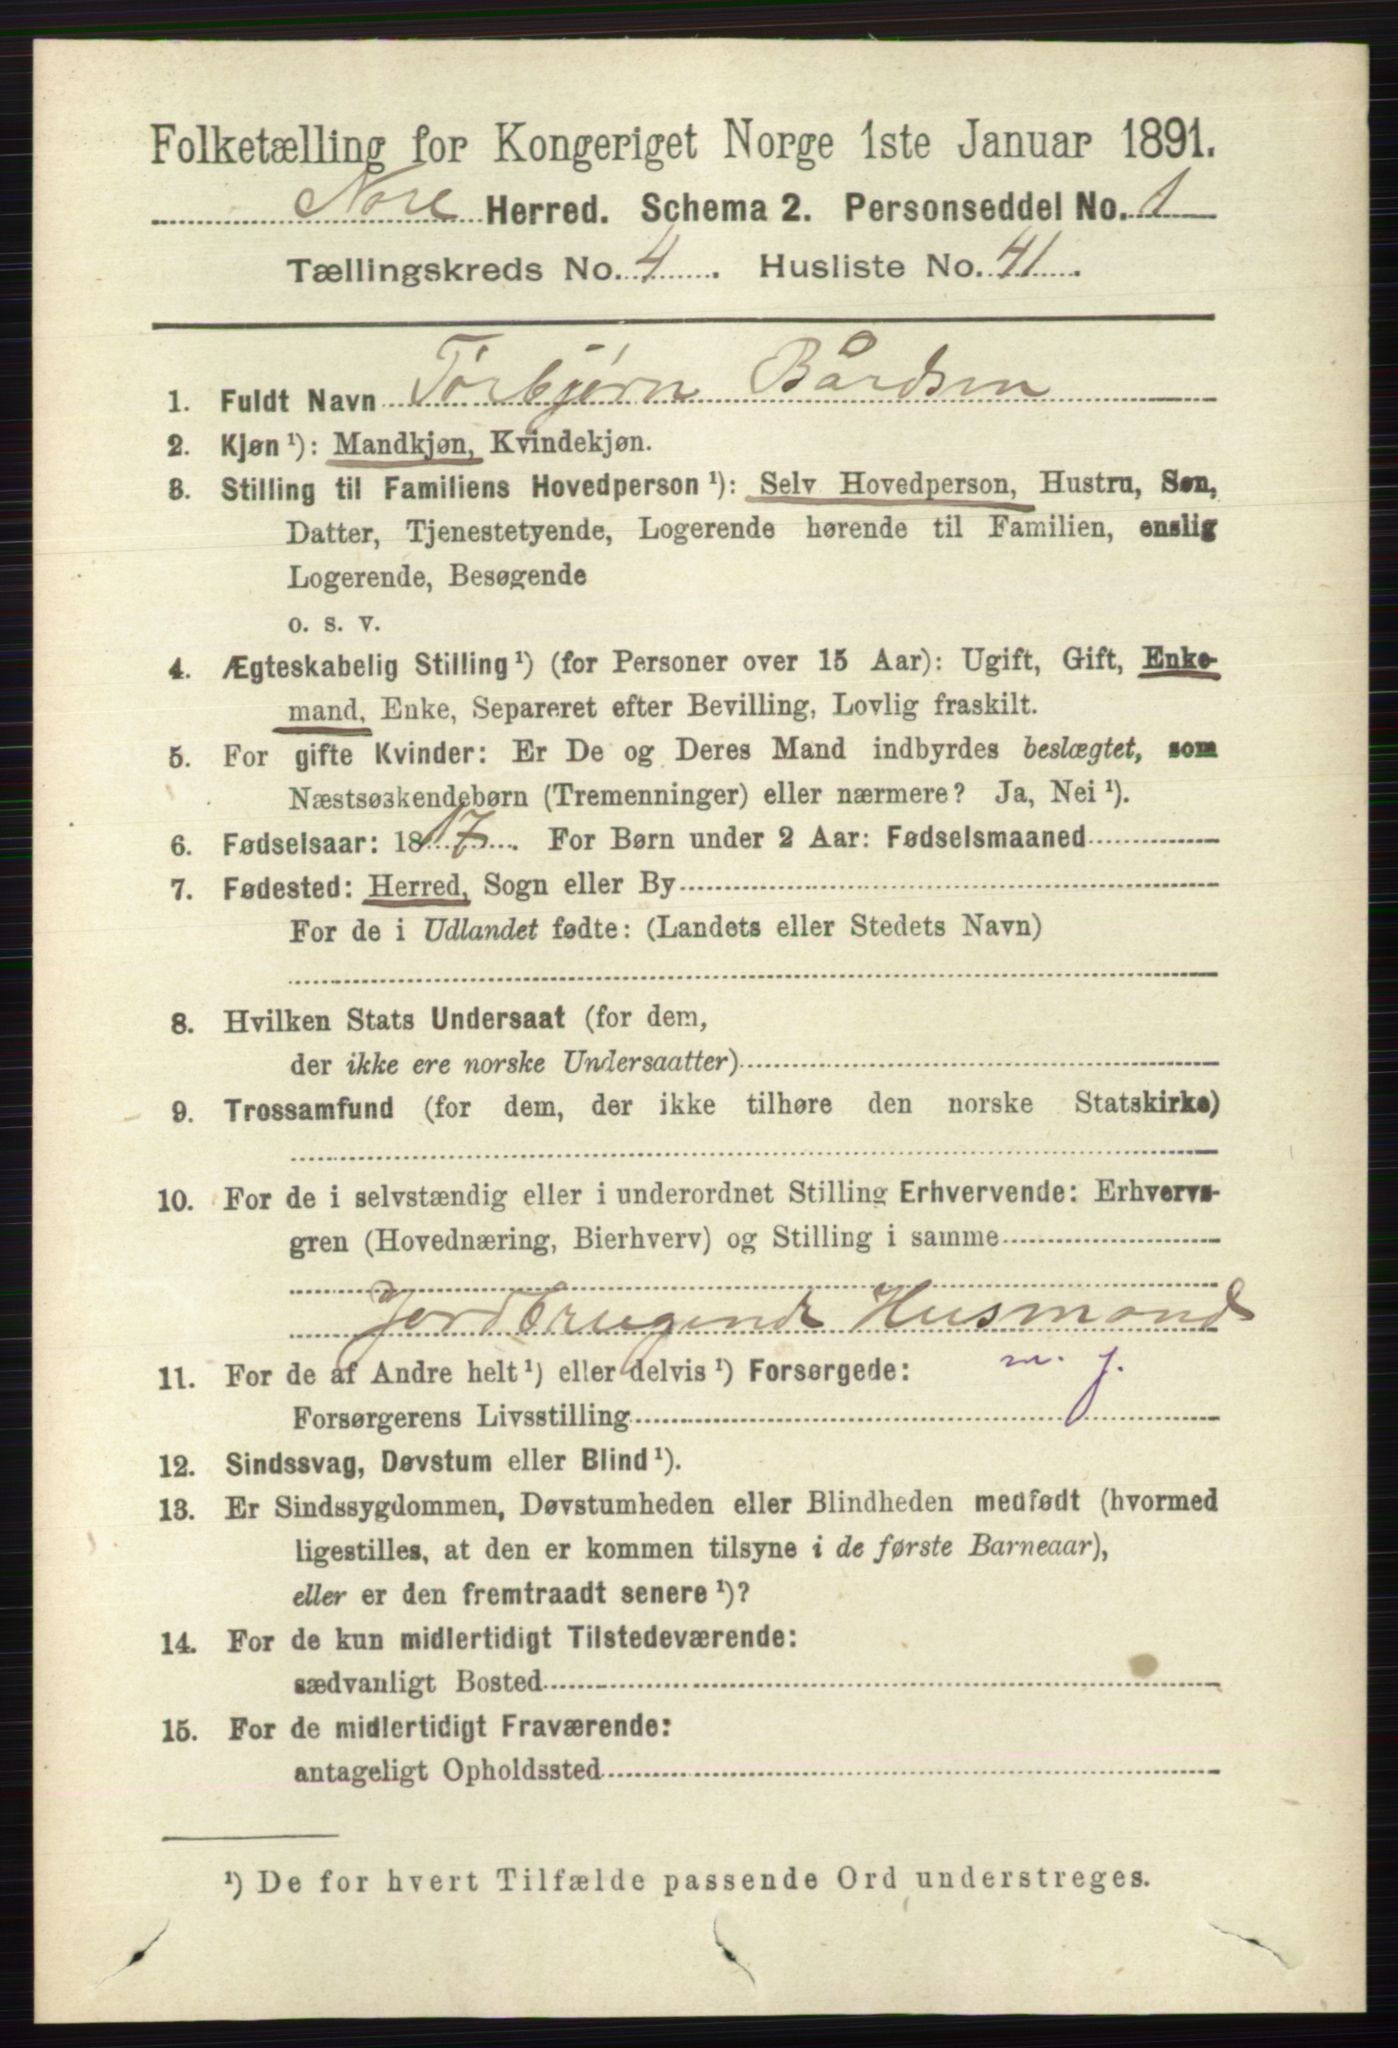 Folketælling for Kongeriget Norge 1ste Januar 1891.
Nore Herred. Schema 2. Personseddel No. 1
Tællingskreds No. 4. Husliste No. 41.
1. Fuldt Navn Torbjørn Bårdsen
2. Kjøn ¹): Mandkjøn, Kvindekjøn.
3. Stilling til Familiens Hovedperson ¹): Selv Hovedperson, Hustru, Søn,
Datter, Tjenestetyende, Logerende hørende til Familien, enslig
Logerende, Besøgende
o. s. v.
4. Ægteskabelig Stilling ¹) (for Personer over 15 Aar): Ugift, Gift, Enke-
mand, Enke, Separeret efter Bevilling, Lovlig fraskilt.
5. For gifte Kvinder: Er De og Deres Mand indbyrdes beslægtet, som
Næstsøskendebørn (Tremenninger) eller nærmere? Ja, Nei ¹).
6. Fødselsaar: 1817. For Børn under 2 Aar: Fødselsmaaned
7. Fødested: Herred, Sogn eller By
For de i Udlandet fødte: (Landets eller Stedets Navn)
8. Hvilken Stats Undersaat (for dem,
der ikke ere norske Undersaatter)
9. Trossamfund (for dem, der ikke tilhøre den norske Statskirke)
10. For de i selvstændig eller i underordnet Stilling Erhvervende: Erhvervs-
gren (Hovednæring, Bierhverv) og Stilling i samme
Jordbrugende Husmand
m. j.
11. For de af Andre helt ¹) eller delvis ¹) Forsørgede:
Forsørgerens Livsstilling
12. Sindssvag, Døvstum eller Blind ¹).
13. Er Sindssygdommen, Døvstumheden eller Blindheden medfødt (hvormed
ligestilles, at den er kommen tilsyne i de første Barneaar),
eller er den fremtraadt senere ¹)?
14. For de kun midlertidigt Tilstedeværende:
sædvanligt Bosted
15. For de midlertidigt Fraværende:
antageligt Opholdssted
¹) De for hvert Tilfælde passende Ord understreges.